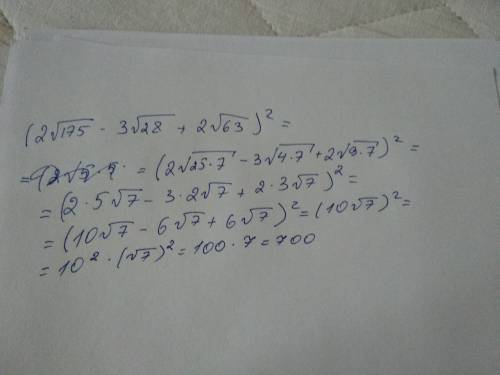 (2√175 - 3√28 + 2√63)² =
= = (2√25·7 - 3√4·7 + 2√9·7)² =
= (2·5√7 - 3·2√7 + 2·3√7)² =
= (10√7 - 6√7 + 6√7)² = (10√7)² =
= 10² · (√7)² = 100·7 = 700